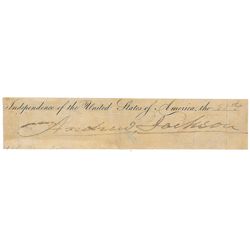 Independence of the United States of America, the
Andrew Jackson